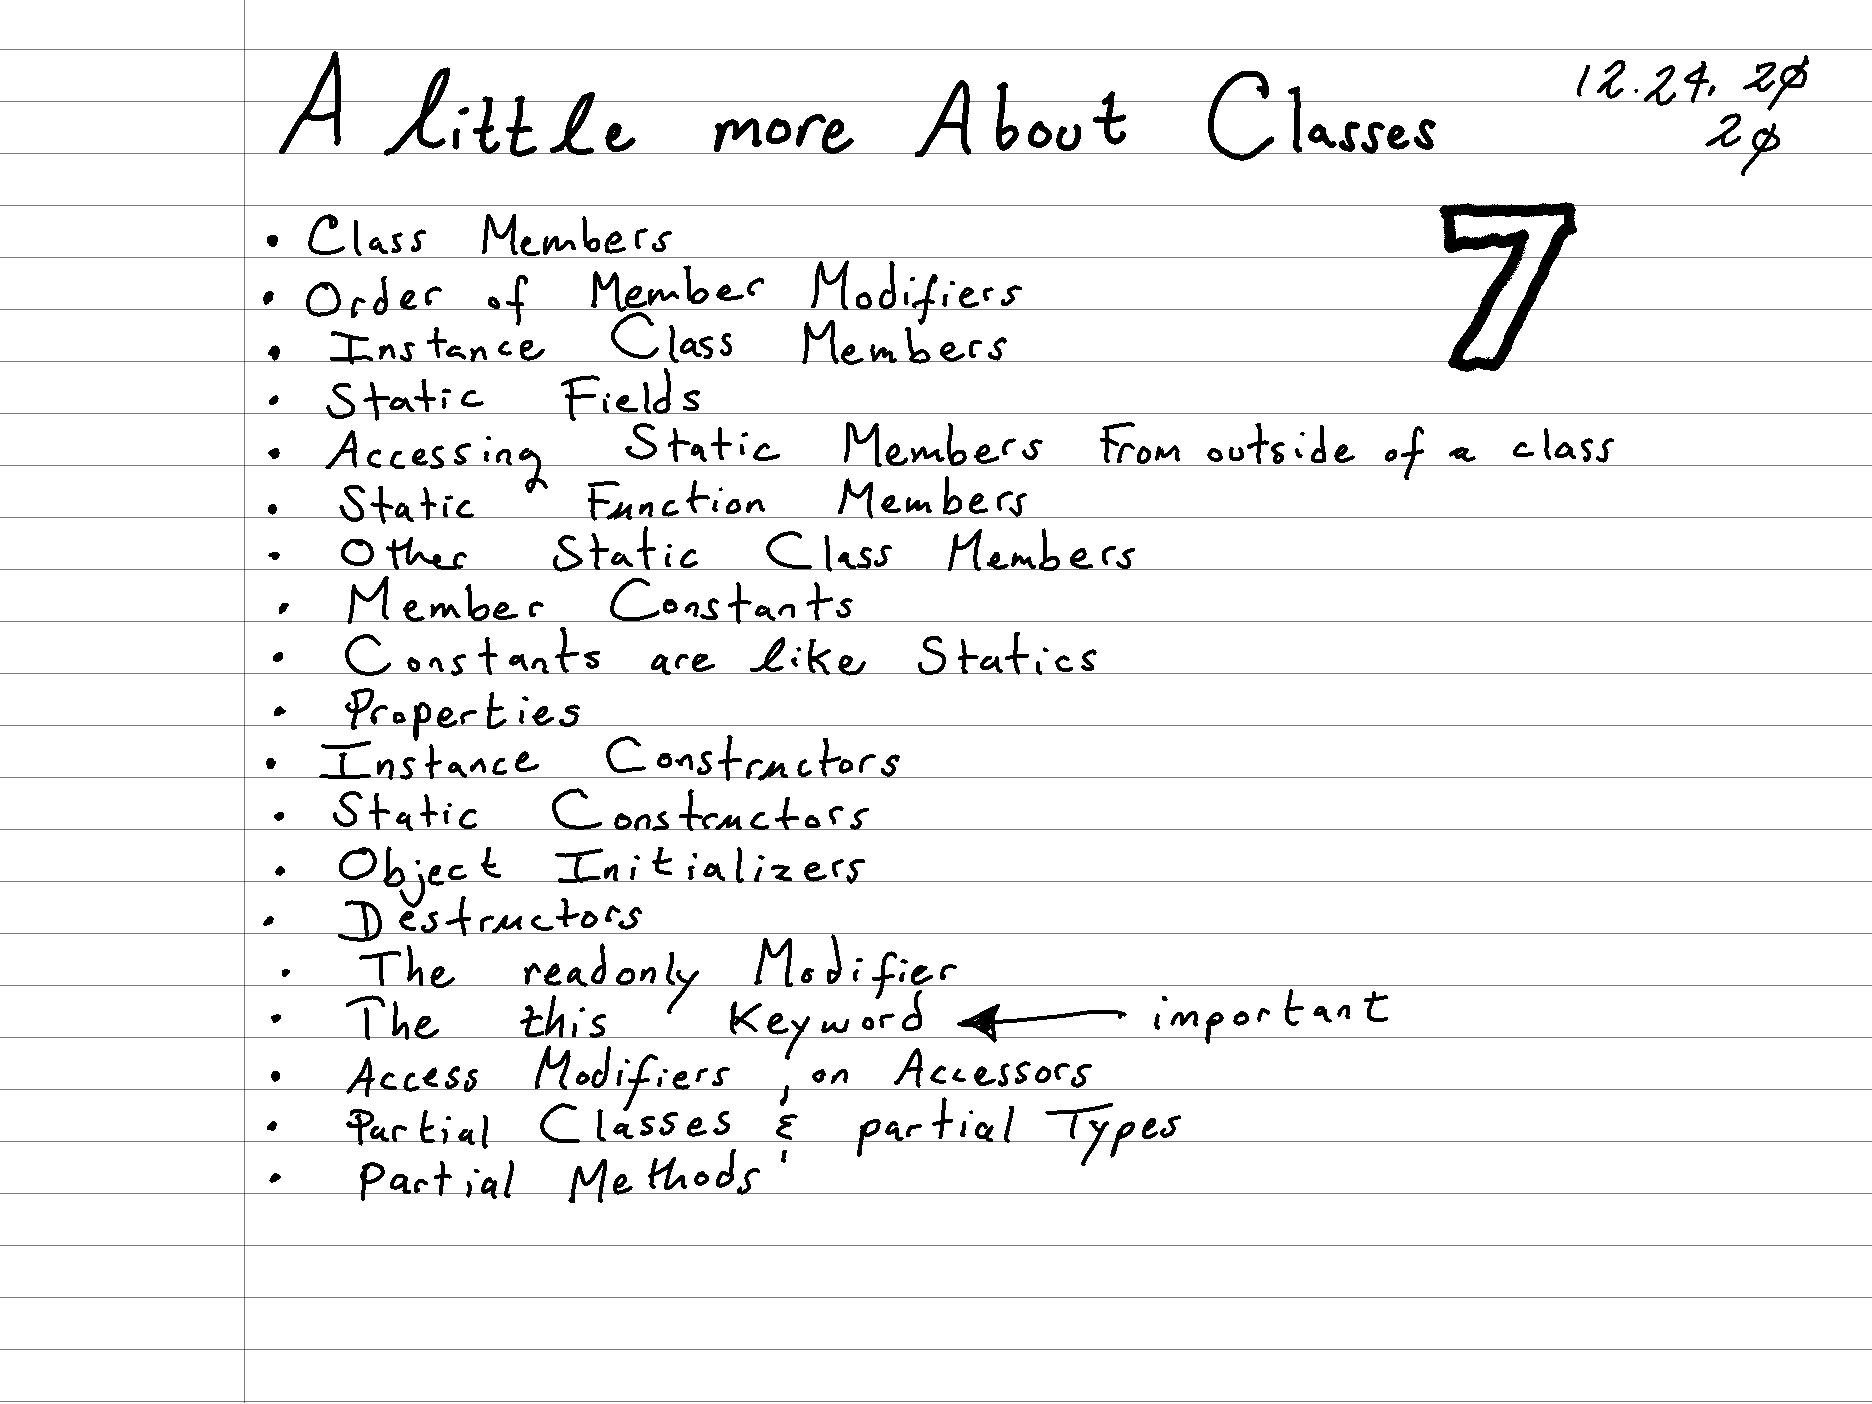 A little more About Classes 12.24.20
20
7
• Class Members
• Order of Member Modifiers
• Instance Class Members
• Static Fields
• Accessing Static Members From outside of a class
• Static Function Members
• Other Static Class Members
• Member Constants
• Constants are like Statics
• Properties
• Instance Constructors
• Static Constructors
• Object Initializers
• Destructors
• The readonly Modifier
• The this Keyword ← important
• Access Modifiers on Accessors
• Partial Classes & partial Types
• Partial Methods